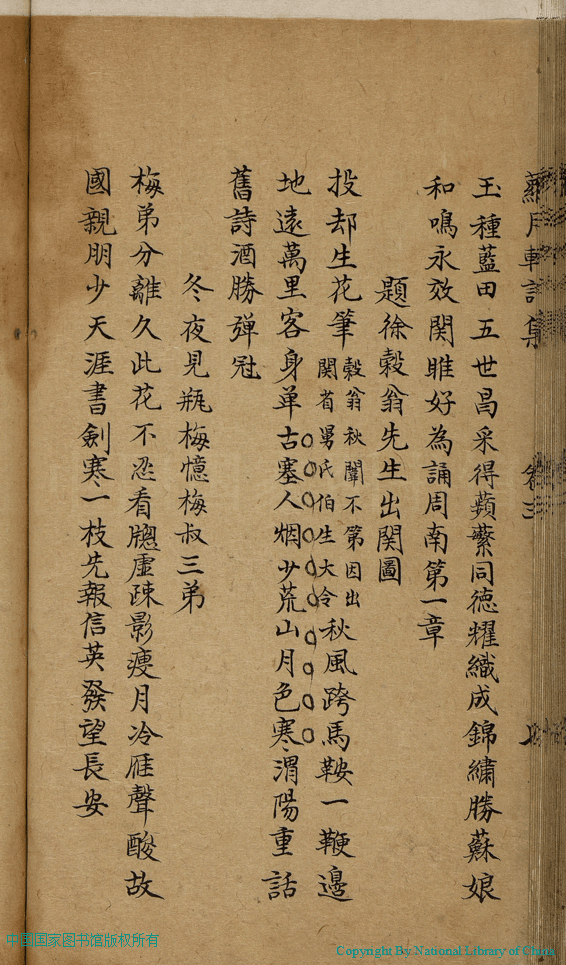 月軒詩集 卷三
玉種藍田五世昌采得蘋蘩同德耀織成錦繡勝蘇娘
和鳴永效関雎好為誦周南第一章
題徐穀翁先生出関圖
投却生花筆
穀翁秋闈不第因出
関省舅氏伯生大令
秋風跨馬鞍一鞭邊
地遠萬里客身单古塞人烟少荒山月色寒渭陽重話
舊詩酒勝弾冠
冬夜見瓶梅憶梅叔三弟
梅弟分離久此花不忍看牕虛疎影瘦月冷雁聲酸故
國親朋少天涯書劍寒一枝先報信英發望長安
中国国家图书馆版权所有
Copyright By National Library of China